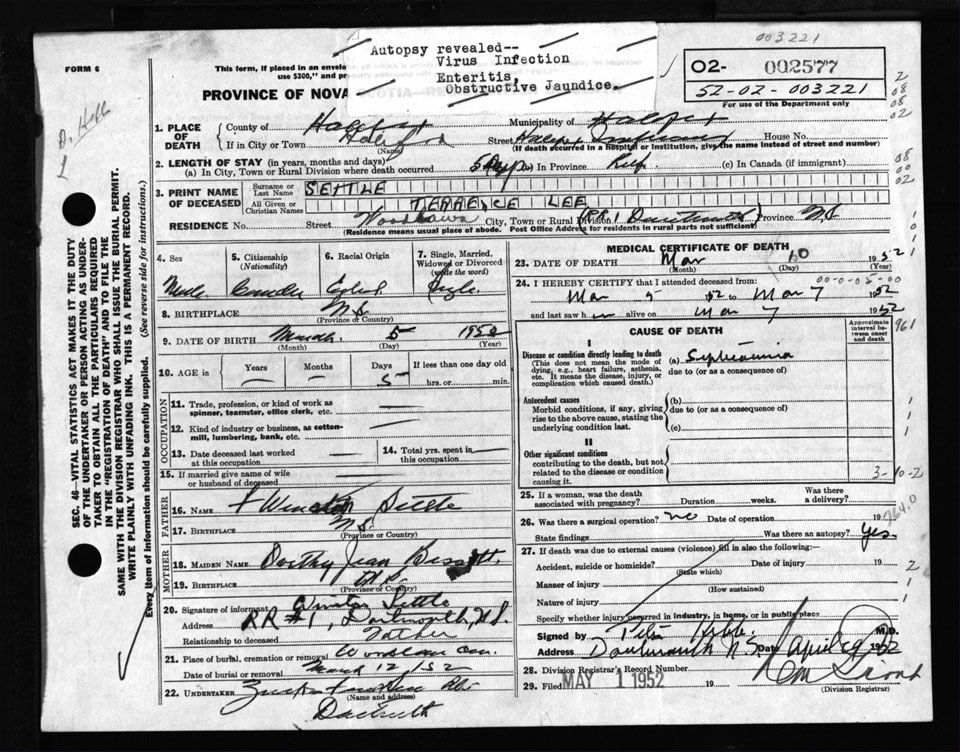 003221
FORM 6
Autopsy revealed--
Virus Infection
Enteritis,
Obstructive Jaundice.
02- 002577
52-02-003221
For use of the Department only
This form, if placed in an envelo
use $300," and pr
PROVINCE OF NOVA SCOTIA
1. PLACE OF DEATH
County of Halifax Municipality of Halifax
If in City or Town Halifax Street Halifax House No.
(Name) (If death occurred in a Hospital or Institution, give the name instead of street and number)
2. LENGTH OF STAY (in years, months and days)
(a) In City, Town or Rural Division where death occurred 5 days (b) In Province (c) In Canada (if immigrant)
3. PRINT NAME OF DECEASED
Surname or Last Name SETTLE
All Given or Christian Names TERRENCE LEE
RESIDENCE No. Street Woodlawn City, Town or Rural Division RR 1 Dartmouth Province N.S.
(Residence means usual place of abode. Post Office Address for residents in rural parts not sufficient)
4. Sex Male
5. Citizenship (Nationality)
6. Racial Origin
7. Single, Married, Widowed or Divorced (write the word) Single
8. BIRTHPLACE N.S.
(Province or Country)
9. DATE OF BIRTH March 5 1952
(Month) (Day) (Year)
10. AGE in Years — Months — Days 5 If less than one day old hrs. or min.
OCCUPATION
11. Trade, profession, or kind of work as spinner, teamster, office clerk, etc. —
12. Kind of industry or business, as cotton-mill, lumbering, bank, etc. —
13. Date deceased last worked at this occupation —
14. Total yrs. spent in this occupation —
15. If married give name of wife or husband of deceased
FATHER
16. Name Winston Settle
17. BIRTHPLACE N.S.
(Province or Country)
MOTHER
18. MAIDEN NAME Dorothy Jean Bissett
19. BIRTHPLACE N.S.
(Province or Country)
20. Signature of informant Winston Settle
Address RR #1, Dartmouth, N.S.
Relationship to deceased Father
21. Place of burial, cremation or removal Woodlawn Cem.
Date of burial or removal March 12/52
22. UNDERTAKER
(Name and address)
Dartmouth
MEDICAL CERTIFICATE OF DEATH
23. DATE OF DEATH Mar 10 1952
(Month) (Day) (Year)
24. I HEREBY CERTIFY that I attended deceased from: 00-0-05-00
Mar 5 1952 to Mar 7 1952
and last saw h im alive on Mar 7 1952
CAUSE OF DEATH
Approximate interval between onset and death
I
Disease or condition directly leading to death
(This does not mean the mode of dying, e.g., heart failure, asthenia, etc. It means the disease, injury, or complication which caused death.)
(a) Septicaemia
due to (or as a consequence of)
Antecedent causes
Morbid conditions, if any, giving rise to the above cause, stating the underlying condition last.
(b)
due to (or as a consequence of)
(c)
II
Other significant conditions
contributing to the death, but not related to the disease or condition causing it.
3-10-2
25. If a woman, was the death associated with pregnancy? Duration weeks. Was there a delivery?
26. Was there a surgical operation? no Date of operation 19
State findings Was there an autopsy? Yes.
764.0
27. If death was due to external causes (violence) fill in also the following:—
Accident, suicide or homicide? Date of injury 19
(State which)
Manner of injury
(How sustained)
Nature of injury
Specify whether injury occurred in industry, in home, or in public place
Signed by M.D.
Address Dartmouth N.S. Date April 29 1952
28. Division Registrar's Record Number
29. Filed MAY 1 1952 19
(Division Registrar)
SEC. 46—VITAL STATISTICS ACT MAKES IT THE DUTY
OF THE UNDERTAKER OR PERSON ACTING AS UNDER-
TAKER TO OBTAIN ALL THE PARTICULARS REQUIRED
IN THE "REGISTRATION OF DEATH" AND TO FILE THE
SAME WITH THE DIVISION REGISTRAR WHO SHALL ISSUE THE BURIAL PERMIT.
WRITE PLAINLY WITH UNFADING INK. THIS IS A PERMANENT RECORD.
Every item of information should be carefully supplied. (See reverse side for instructions.)